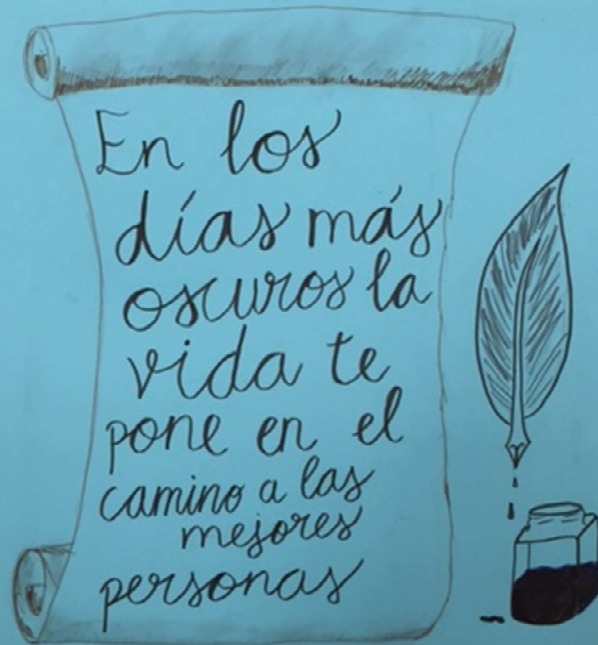 En los
días más
oscuros la
vida te
pone en el
camino a las
mejores
personas